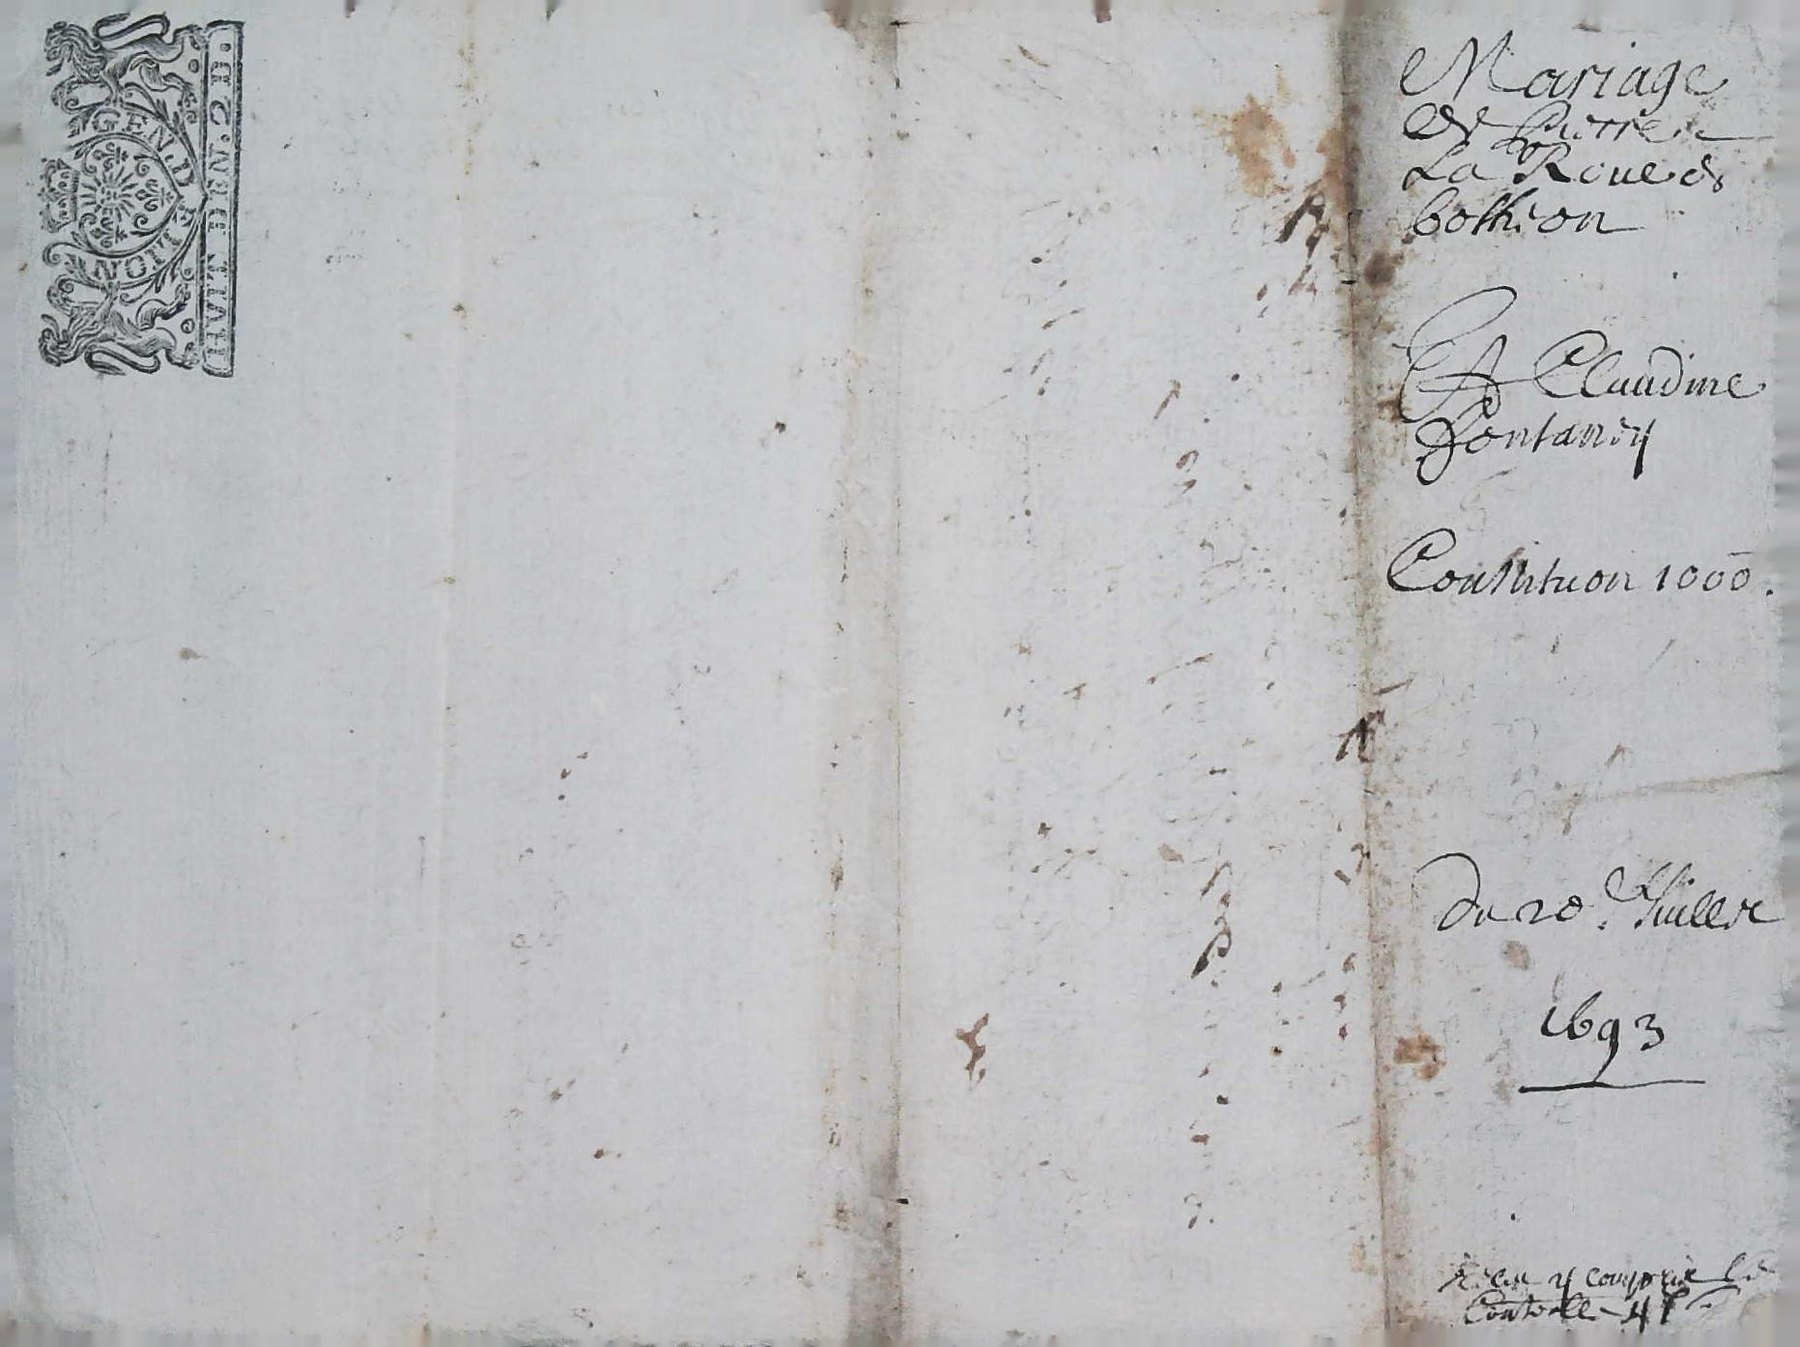 GEN. D
E LION
HUIT DEN. 2 D.
Mariage
de Pierre
La Roue dt
bothion
Et Claudine
Fontaney
Constitution 1000.
du 20e Juillet
1693
Receu y compris le
Controlle 4 l